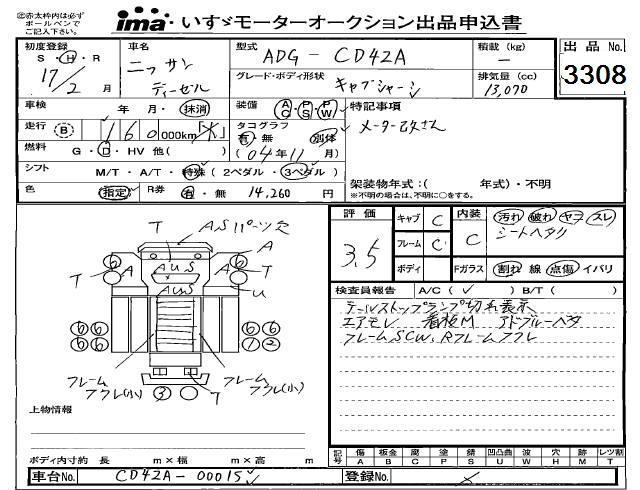 ㊟赤太枠内は必ず
ボールペンで
ご記入下さい。
ima・いすゞモーターオークション出品申込書
初度登録
S・H・R
17/2 月
車名
ニッサン
ディーゼル
型式
ADG-CD42A
グレード・ボディ形状
キャブシャーシ
積載 (kg)
ー
排気量 (cc)
13,070
出品 No.
3308
車検 年 月・抹消
装備 AC・PS・PW
特記事項
メーター改ざん
走行 B 160,000km
タコグラフ
有・無 別体
(04年11月)
燃料 G・D・HV 他( )
シフト M/T・A/T・特殊 (2ペダル・3ペダル)
色 指定 R券 有・無 14,260 円
架装物年式:( 年式)・不明
※不明の場合は、不明に○をする。
評価
3.5
キャブ C
フレーム C
ボディ
内装 C
汚れ・破れ・ヤコ・スレ
シートヘタリ
Fガラス 割れ 線 点傷・イバリ
検査員報告 A/C( ✓ )・B/T( )
テールストップランプ切れ表示
エアモレ 看板M アドブルーヘタ
フレームSCW、Rフレームアフレ
T
ASパーツ欠
A
6
6
T
A
AUS
A
T
AUS
U
6 6
6 6
6 6
1 2
フレーム
アフレ(小)
3
T
フレーム
アフレ(小)
上物情報
ボディ内寸約 長 m×幅 m×高 m
記号 傷 A 板金 B 腐 C 塗 P 錆 S 凹凸曲 U 波 W 穴 H 跡 M レツ割 T
車台No. CD42A-00015 ✓
登録No.